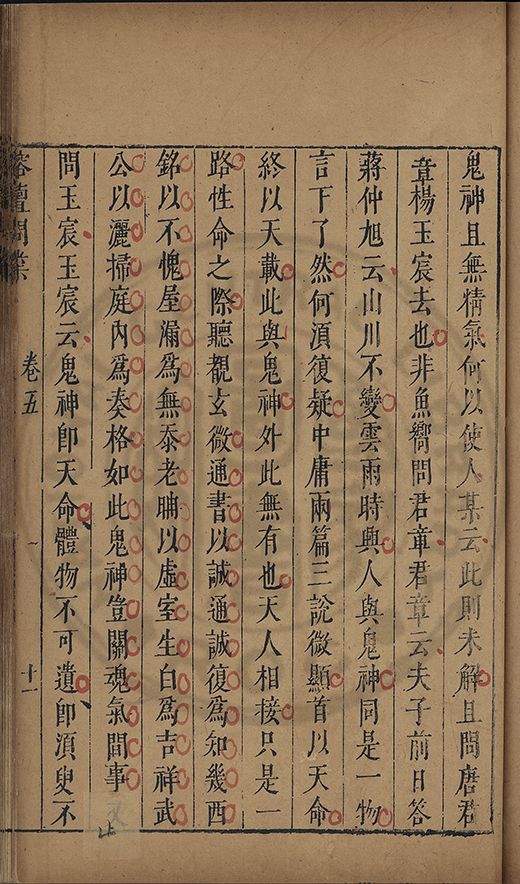 鬼神且無精氣何以使人某云此則未解且問唐君
章楊玉宸去也非魚嚮問君章君章云夫子前日答
蔣仲旭云山川不變雲雨時與人與鬼神同是一物
言下了然何須復疑中庸兩篇三說微顯首以天命
終以天載此與鬼神外此無有也天人相接只是一
路性命之際聽覩玄微通書以誠通誠復為知幾西
銘以不愧屋漏為無忝老聃以虛室生白為吉祥武
公以灑掃庭內為奏格如此鬼神豈關魂氣間事
問玉宸玉宸云鬼神卽天命體物不可遺卽須臾不
榕壇問業
卷五
十一